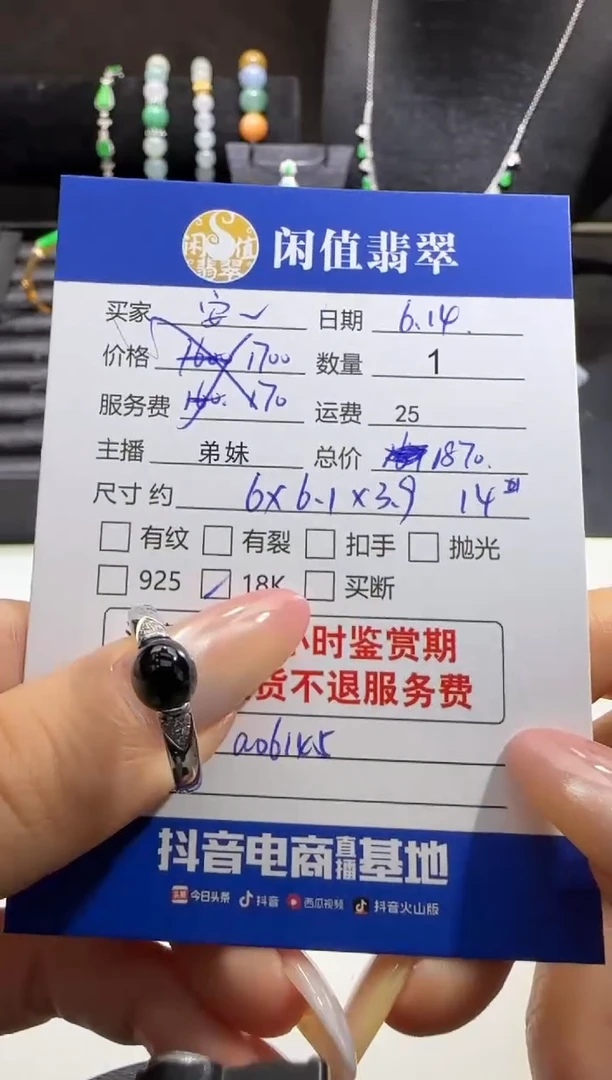 闲值翡翠
闲值翡翠
买家 安一 日期 6.14.
价格 160 1700 数量 1
服务费 160. 170 运费 25
主播 弟妹 总价 1870.
尺寸 约 6x6.1x3.9 14
有纹 有裂 扣手 抛光
925 18K 买断
小时鉴赏期
货不退服务费
抖音电商直播基地
今日头条 抖音 西瓜视频 抖音火山版